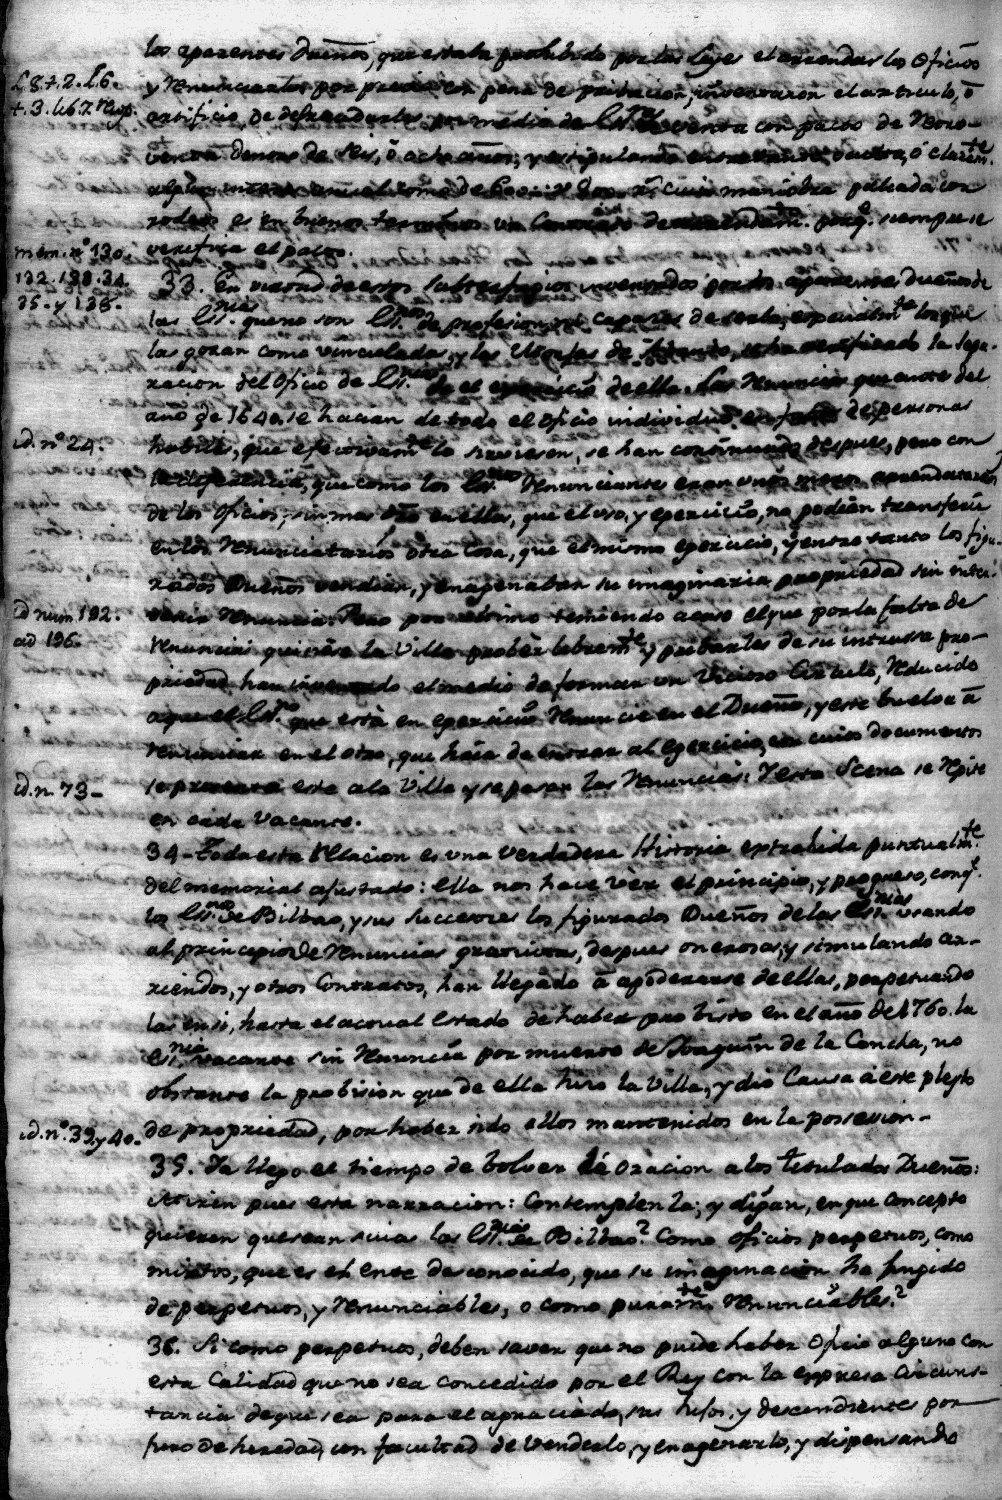 los aparentes dueños, que estaba prohibido por las Leyes el arrendar los Oficios
L. 8. t. 2. L. 6.
y renunciarlos por precio con pena de pribacion, inventaron el articulo, ò
t. 3. lib. 7. Recop.
artificio de defraudarlas por medio de Es.ras de venta con pacto de retro-
venta dentro de seis, ò ocho años, y estipulando entretanto ò clarem.te
rodeos es en buenos terminos un Contrato de arrendam.to porq.e siempre se
mem. n.º 130.
verifica el pacto.
132. 133. 34.
33. En virtud de estos subterfugios inventados por los aparentes dueños de
35. y 138.
las Es.nias que no son Es.nos de profesion, ni capaces de serlo, especialm.te los que
las gozan como vinculadas, y las se ha verificado la sepa-
racion del Oficio de Es.nos de el exercicio de ella. Las renuncias que antes del
año de 1640. se hacian de todo el Oficio individuo en favor de personas
id. n.º 24.
habiles, que efectivam.te lo sirviesen, se han continuado despues, pero con
la diferencia, que como los Es.nos Renunciantes eran unos meros arrendatarios
de los Oficios, sin mas en ellas, que el uso, y exercicio, no podian transferir
en los Renunciatarios otra cosa, que el mismo exercicio, y entre tanto los figu-
rados Dueños vendian, y enagenaban su imaginaria propriedad sin inter-
id num. 192.
venir Renuncia. Pero por ultimo temiendo acaso el que por la falta de
ad 196.
renuncias quisiese la Villa proveer librem.te y pribarles de su intrusa pro-
priedad han inventado el medio de formar un vicioso Circulo, reducido
a que el Es.no que està en exercicio renuncie en el Dueño, y este buelva à
renunciar en el otro, que haia de entrar al exercicio, con cuios documentos
id. n. 73-
se presenta este a la Villa y se pasan las renuncias: Y esta Scena se repite
en cada vacante.
34- Toda esta relacion es una verdadera Historia extrahida puntualm.te
del memorial ajustado: Ella nos hace ver el principio, y progreso, con q.e
los Es.nos de Bilbao, y sus succesores los figurados Dueños de las Es.nias usando
al principio de renuncias gratuitas, despues onerosas, y simulando ar-
riendos, y otros Contratos, han llegado à apoderarse de ellas, perpetuando
las en si, hasta el actual estado de haber probisto en el año de 1760. la
Es.nia vacante sin renuncia por muerte de Joaquin de la Concha, no
obstante la probision que de ella hizo la Villa, y dio Causa à este pleyto
id. n.º 39 y 40.
de propriedad, por haber sido ellos mantenidos en la possesion.
35. Ya llegò el tiempo de bolver la oracion a los titulados Dueños:
Miren pues esta narracion: Contemplenla; y digan, en que concepto
quieren que sean suias las Es.nias de Bilbao? Como oficios perpetuos, como
mixtos, que es el ente desconocido, que su imaginacion ha fingido
de perpetuos, y renunciables, o como puram.te renunciables?
36. Si como perpetuos, deben saver que no puede haber Oficio alguno con
esta calidad que no sea concedido por el Rey con la expresa circuns-
tancia de que sea para el agraciado, sus hijos, y descendientes por
juro de heredad, con facultad de venderlo, y enagenarlo, y dispensando